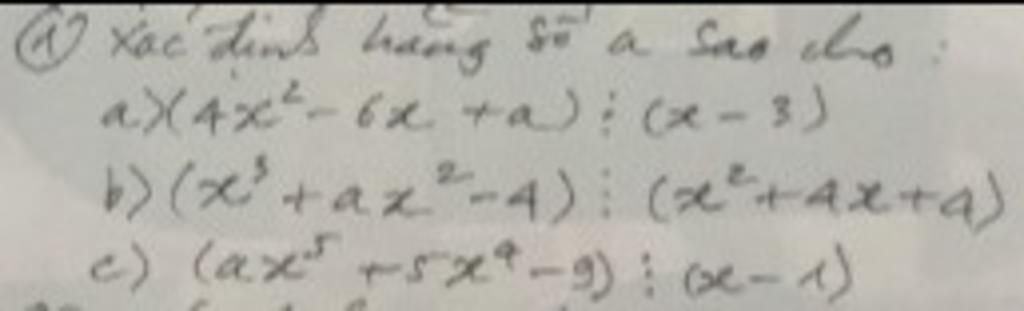 ① Xác định hằng số a sao cho :
a) (4x² - 6x + a) ⋮ (x - 3)
b) (x³ + ax² - 4) ⋮ (x² + 4x + 4)
c) (ax⁵ + 5x⁴ - 9) ⋮ (x - 1)